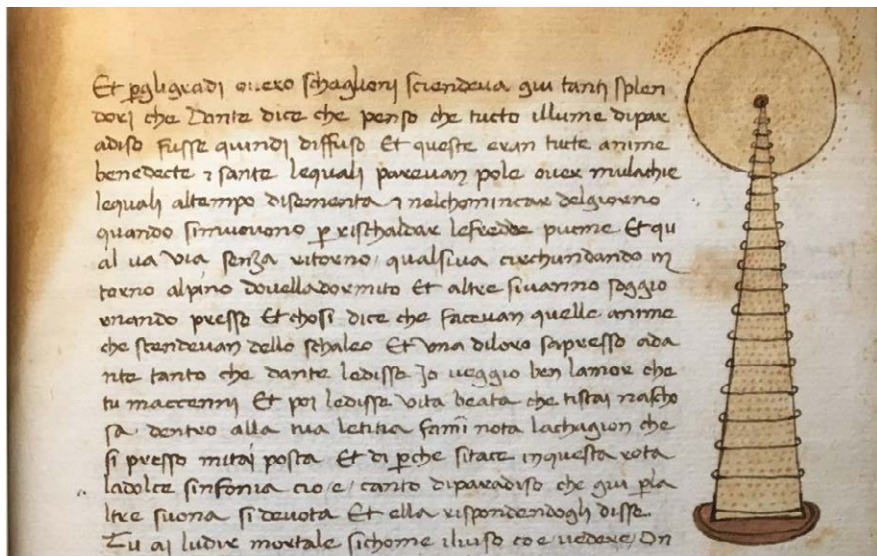 Et pgligradi overo schaglioni sciendeva qui tanti splen
dori che Dante dice che penso che tucto illume dipar
adiso fusse quindi diffuso Et queste eran tutte anime
benedecte ⁊ sante lequali parevan pole over mulachie
lequali altempo disementa ⁊ nelchomincar delgiorno
quando simuovono p rischaldar lefredde piume Et qu
al va via senza ritorno, qualsiva circhundando in
torno alpino dovelladormito Et altre sivanno soggio
rnando presso Et chosi dice che facevan quelle anime
che scendevan dello schaleo Et una diloro sapresso ada
nte tanto che dante ledisse Jo veggio ben lamor che
tu maccenni Et poi ledisse vita beata che tistai nascho
sa. dentro alla tua letitia fami nota lachagion che
si presso mitai posta Et di pche sitace inquesta rota
ladolce sinfonia cio e, canto diparadiso che qui pla
ltre suona si devota Et ella rispondendogli disse.
Tu ai ludir mortale sichome iluiso co e vedere, On